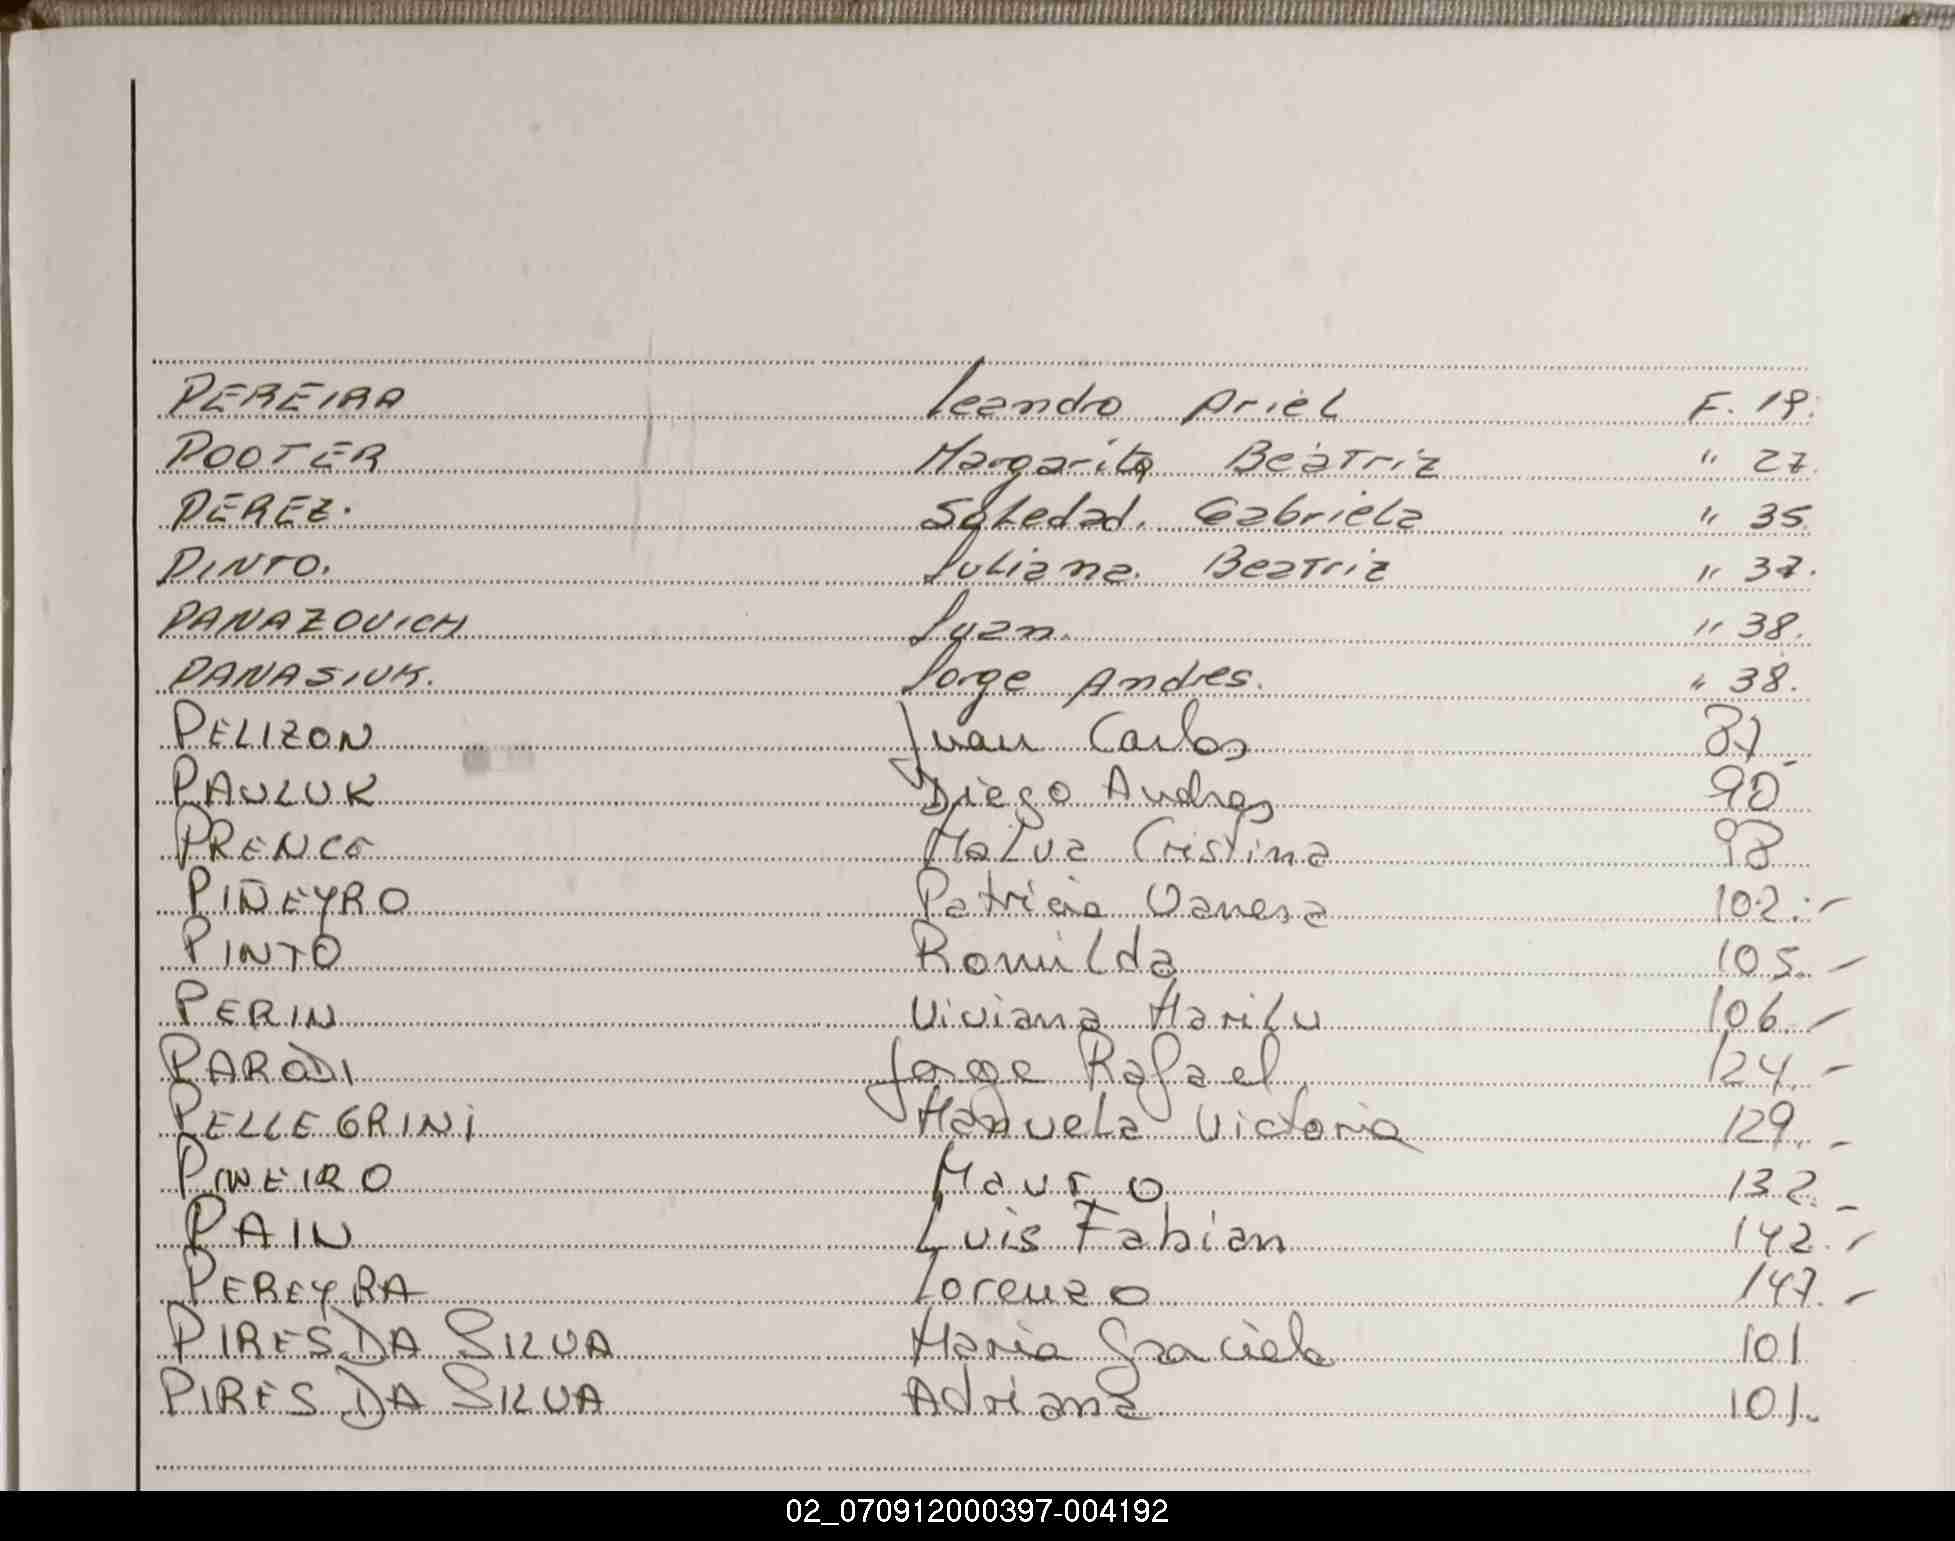 PEREIRA Leandro Ariel F. 19.
POOTER Margarita Beatriz " 27.
PEREZ. Soledad. Gabriela " 35
PINTO. Juliana. Beatriz " 37.
PANAZOVICH Juan. " 38.
PANASIUK. Jorge Andres. " 38.
PELIZON Juan Carlos 87
PAULUK Diego Andres 90
PRENCE Malva Cristina 98
PIÑEYRO Patricia Vanesa 102.-
PINTO Romilda 105. -
PERIN Viviana Marilu 106. -
PARODI Jorge Rafael 124. -
PELLEGRINI Manuela Victoria 129. -
PINEIRO Mauro 132. -
PAIN Luis Fabian 142. -
PEREYRA Lorenzo 147. -
PIRES DA SILVA Maria Graciela 101
PIRES DA SILVA Adriana 101.
02_070912000397-004192